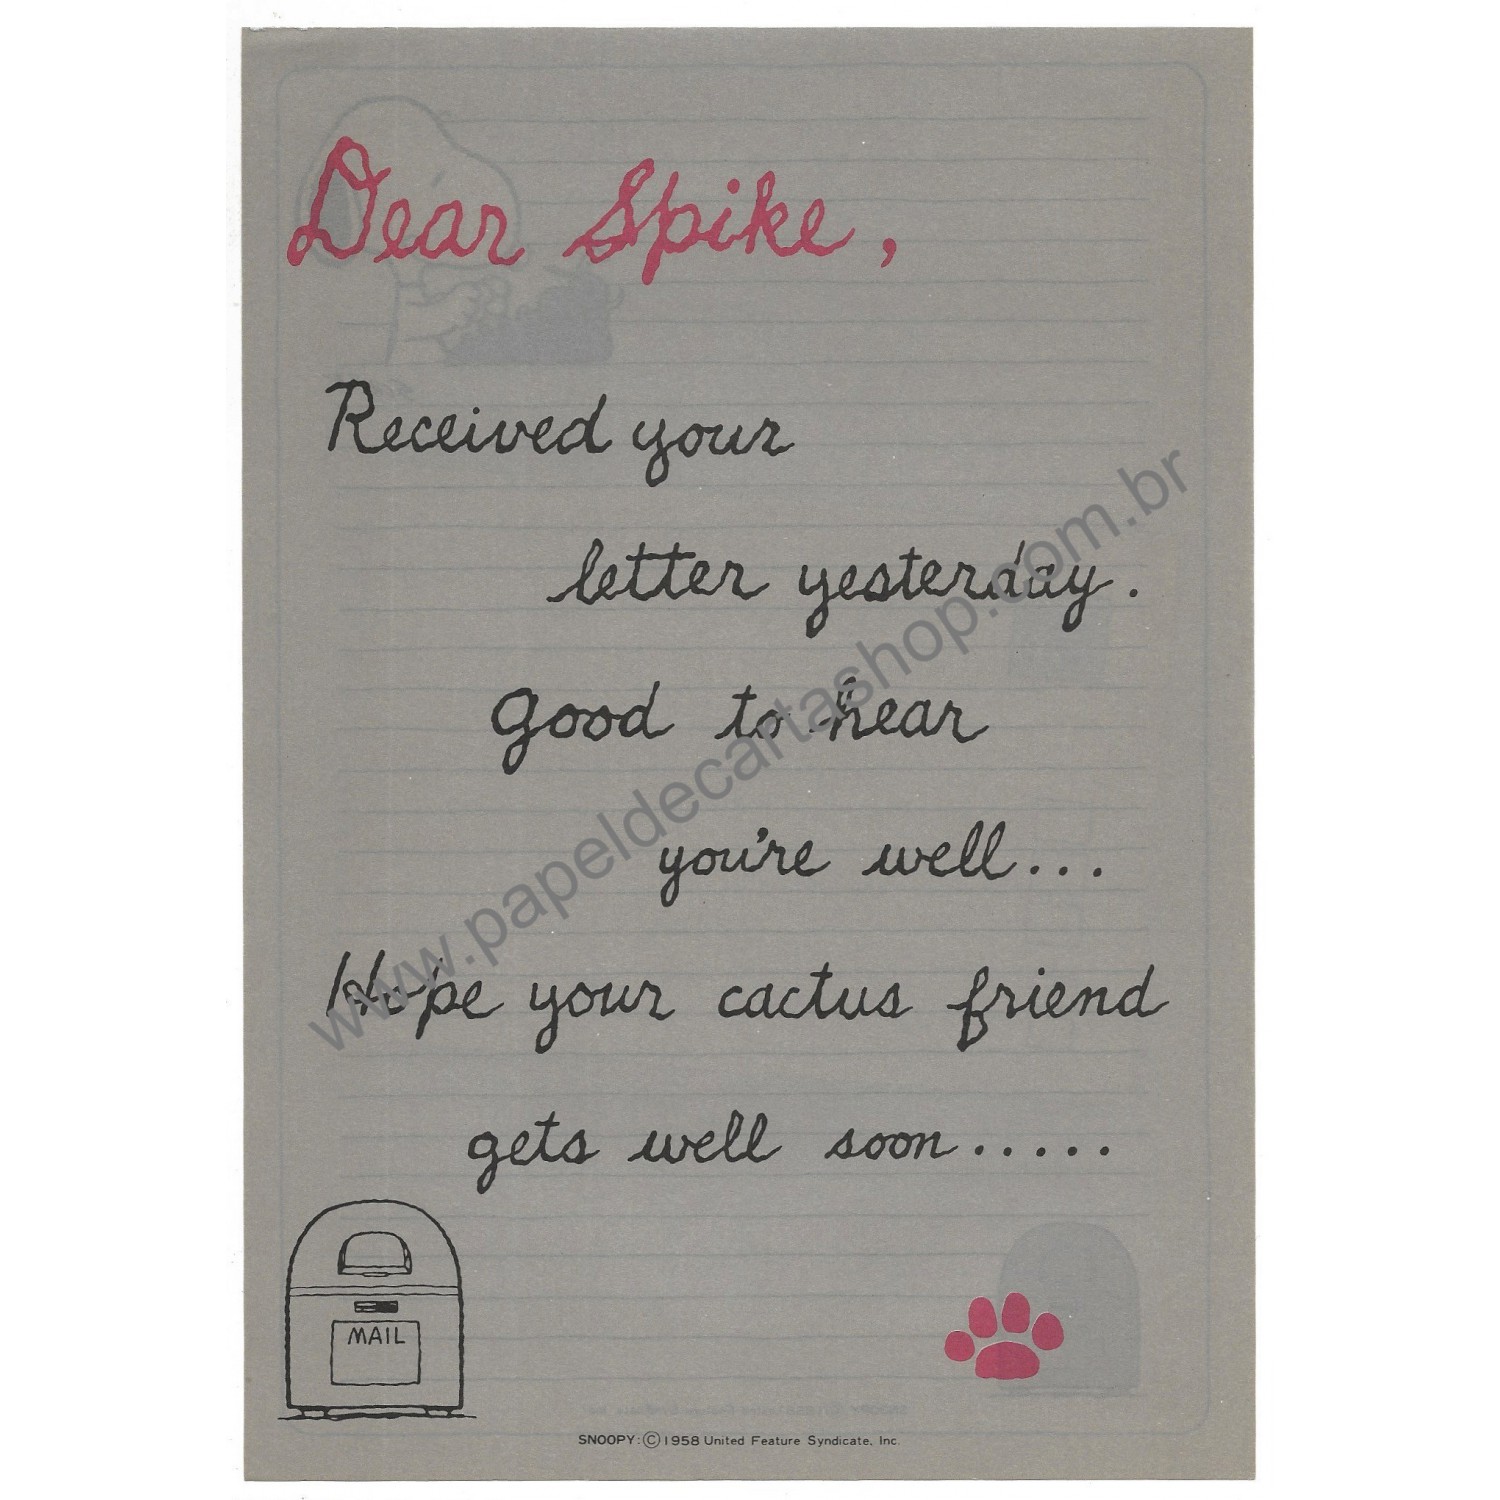 Dear Spike,
Received your
letter yesterday.
good to hear
you're well...
Hope your cactus friend
gets well soon.....
MAIL
SNOOPY:©1958 United Feature Syndicate, Inc.
www.papeldecartashop.com.br